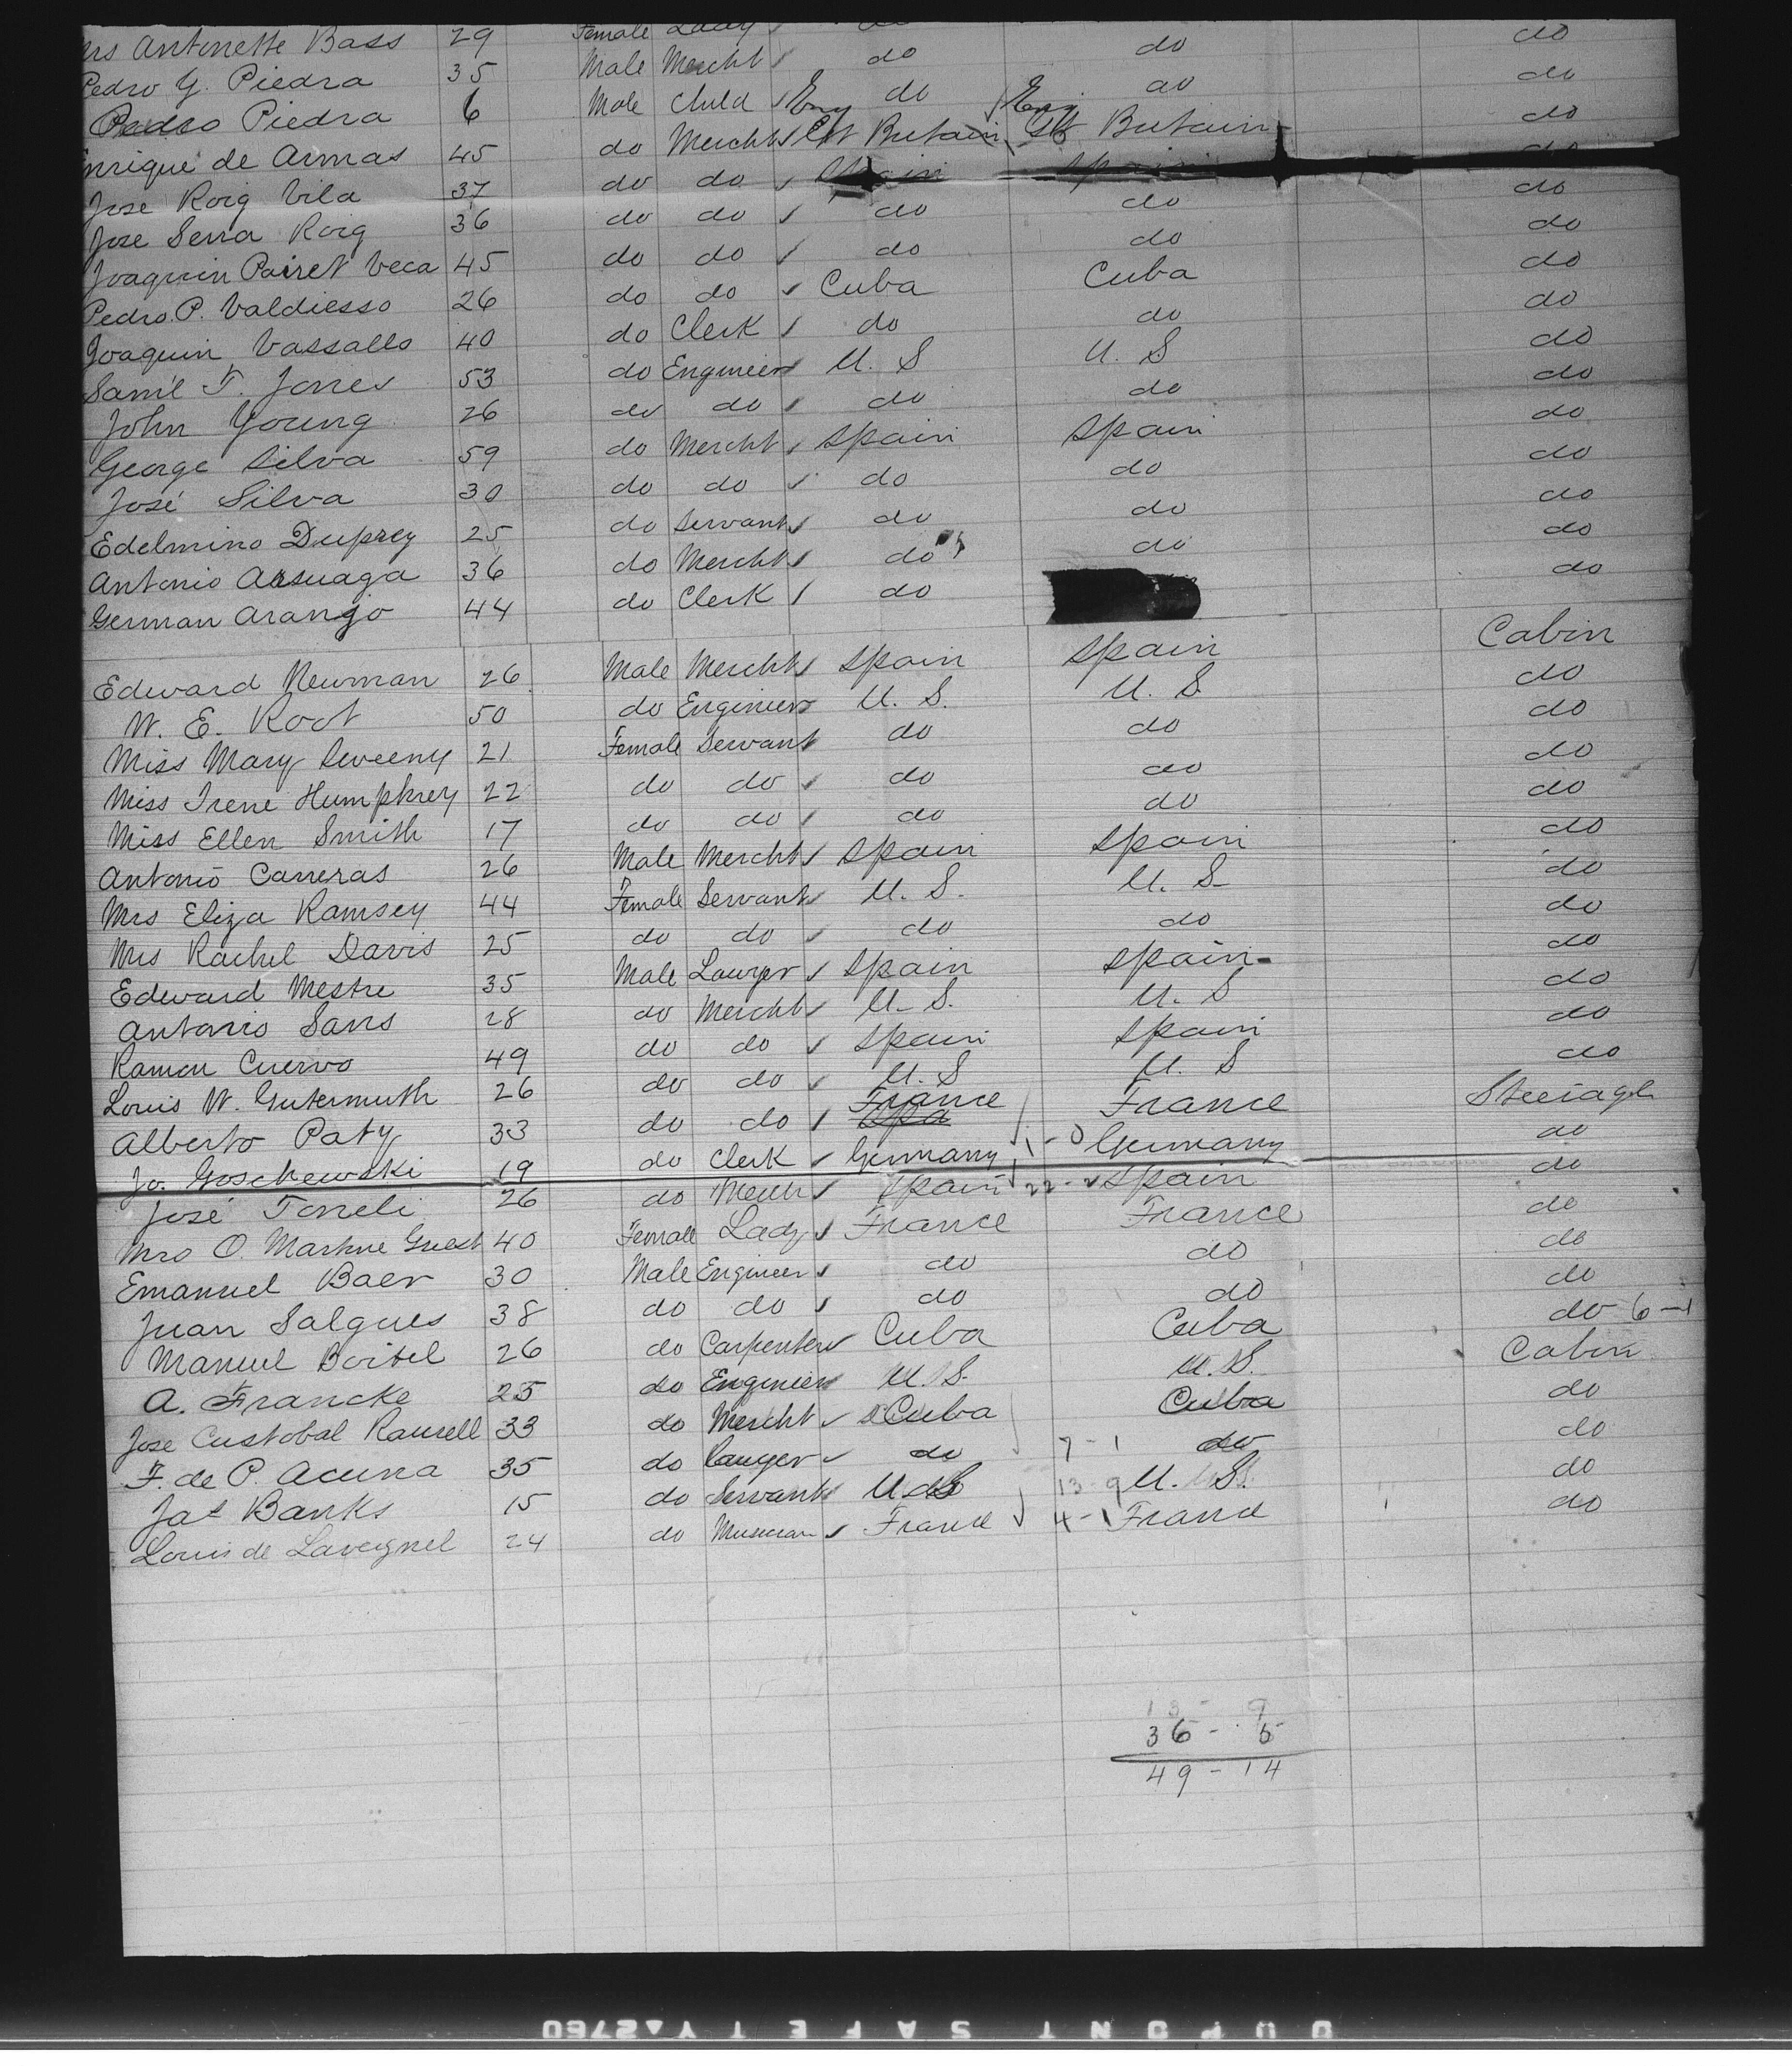 Mrs Antonette Bass 29 Female Lady do do do
Pedro Y. Piedra 35 Male Mercht do do do
Pedro Piedra 6 Male Child do do do
Enrique de Armas 45 do Mercht Eng Gt Britain Eng Gt Britain do
Jose Roig Vila 37 do do Spain Spain do
Jose Serra Roig 36 do do do do do
Joaquin Pairet Veca 45 do do do do do
Pedro P. Valdiesso 26 do do Cuba Cuba do
Joaquin Vassallo 40 do Clerk do do do
Sam'l T. Jones 53 do Engineer U. S U. S do
John Young 26 do do do do do
George Silva 59 do Mercht Spain Spain do
José Silva 30 do do do do do
Edelmino Duprey 25 do Servant do do do
Antonio Arsuaga 36 do Mercht do do do
German Aranjo 44 do Clerk do do
Edward Newman 26 Male Mercht Spain Spain Cabin
W. E. Root 50 do Engineer U. S. U. S. do
Miss Mary Sweeny 21 Female Servant do do do
Miss Irene Humphrey 22 do do do do do
Miss Ellen Smith 17 do do do do do
Antonio Carreras 26 Male Mercht Spain Spain do
Mrs Eliza Ramsey 44 Female Servant U. S. U. S. do
Mrs Rachel Davis 25 do do do do do
Edward Mestre 35 Male Lawyer Spain Spain do
Antonio Sans 28 do Mercht U. S. U. S do
Ramon Cuervo 49 do do Spain Spain do
Louis W. Gutermuth 26 do do U. S U. S do
Alberto Paty 33 do do France Spa France Steerage
Jo. Goschewski 19 do Clerk Germany 1 - 0 Germany do
José Torreli 26 do Merch Spain 22 - 2 Spain do
Mrs O. Markue Guest 40 Female Lady France France do
Emanuel Baer 30 Male Engineer do do do
Juan Salgues 38 do do do do do
Manuel Boitel 26 do Carpenter Cuba Cuba do 6 - 1
A. Francke 25 do Engineer U. S. U. S. Cabin
Jose Custobal Raurell 33 do Mercht Cuba Cuba do
F. de P. Acuna 35 do Lawyer do 7 - 1 do do
Jas Banks 15 do Servant U. S 13 - 9 U. S. do
Louis de Lavergnel 24 do Musician France 4 - 1 France do
13 - 9
36 - 5
49 - 14
DUPONT SAFETY 2760